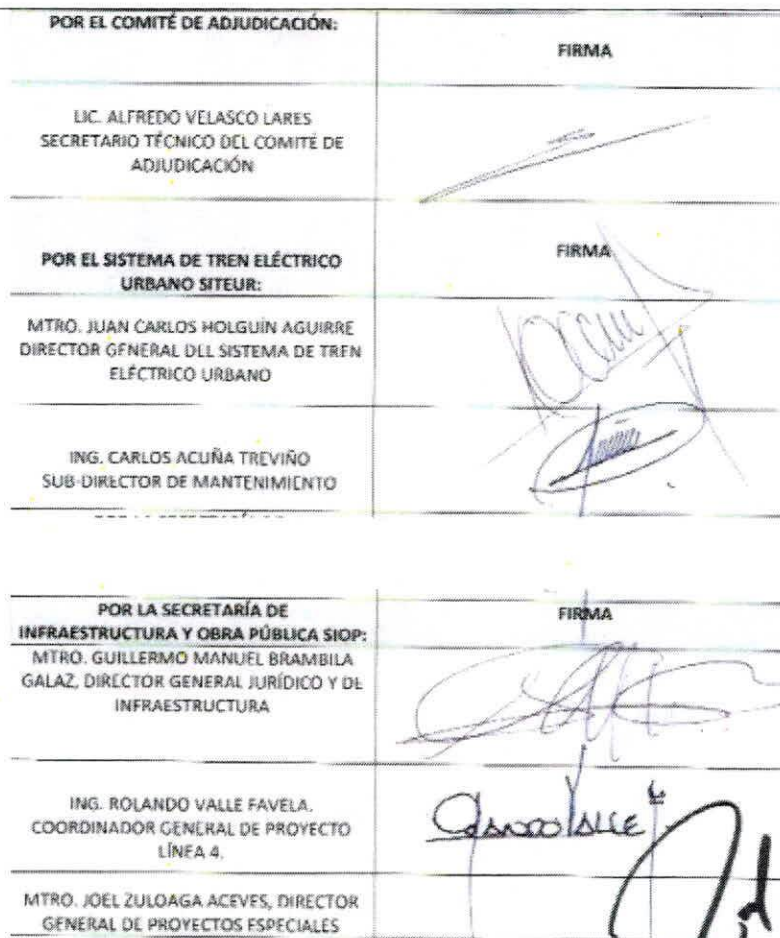 POR EL COMITÉ DE ADJUDICACIÓN:
FIRMA
LIC. ALFREDO VELASCO LARES
SECRETARIO TÉCNICO DEL COMITÉ DE
ADJUDICACIÓN
POR EL SISTEMA DE TREN ELÉCTRICO
URBANO SITEUR:
FIRMA
MTRO. JUAN CARLOS HOLGUÍN AGUIRRE
DIRECTOR GENERAL DEL SISTEMA DE TREN
ELÉCTRICO URBANO
ING. CARLOS ACUÑA TREVIÑO
SUB-DIRECTOR DE MANTENIMIENTO
POR LA SECRETARÍA DE
INFRAESTRUCTURA Y OBRA PÚBLICA SIOP:
FIRMA
MTRO. GUILLERMO MANUEL BRAMBILA
GALAZ, DIRECTOR GENERAL JURÍDICO Y DE
INFRAESTRUCTURA
ING. ROLANDO VALLE FAVELA.
COORDINADOR GENERAL DE PROYECTO
LÍNEA 4.
MTRO. JOEL ZULOAGA ACEVES, DIRECTOR
GENERAL DE PROYECTOS ESPECIALES